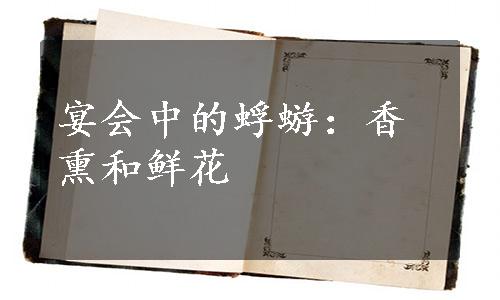 宴会中的蜉蝣：香
熏和鲜花